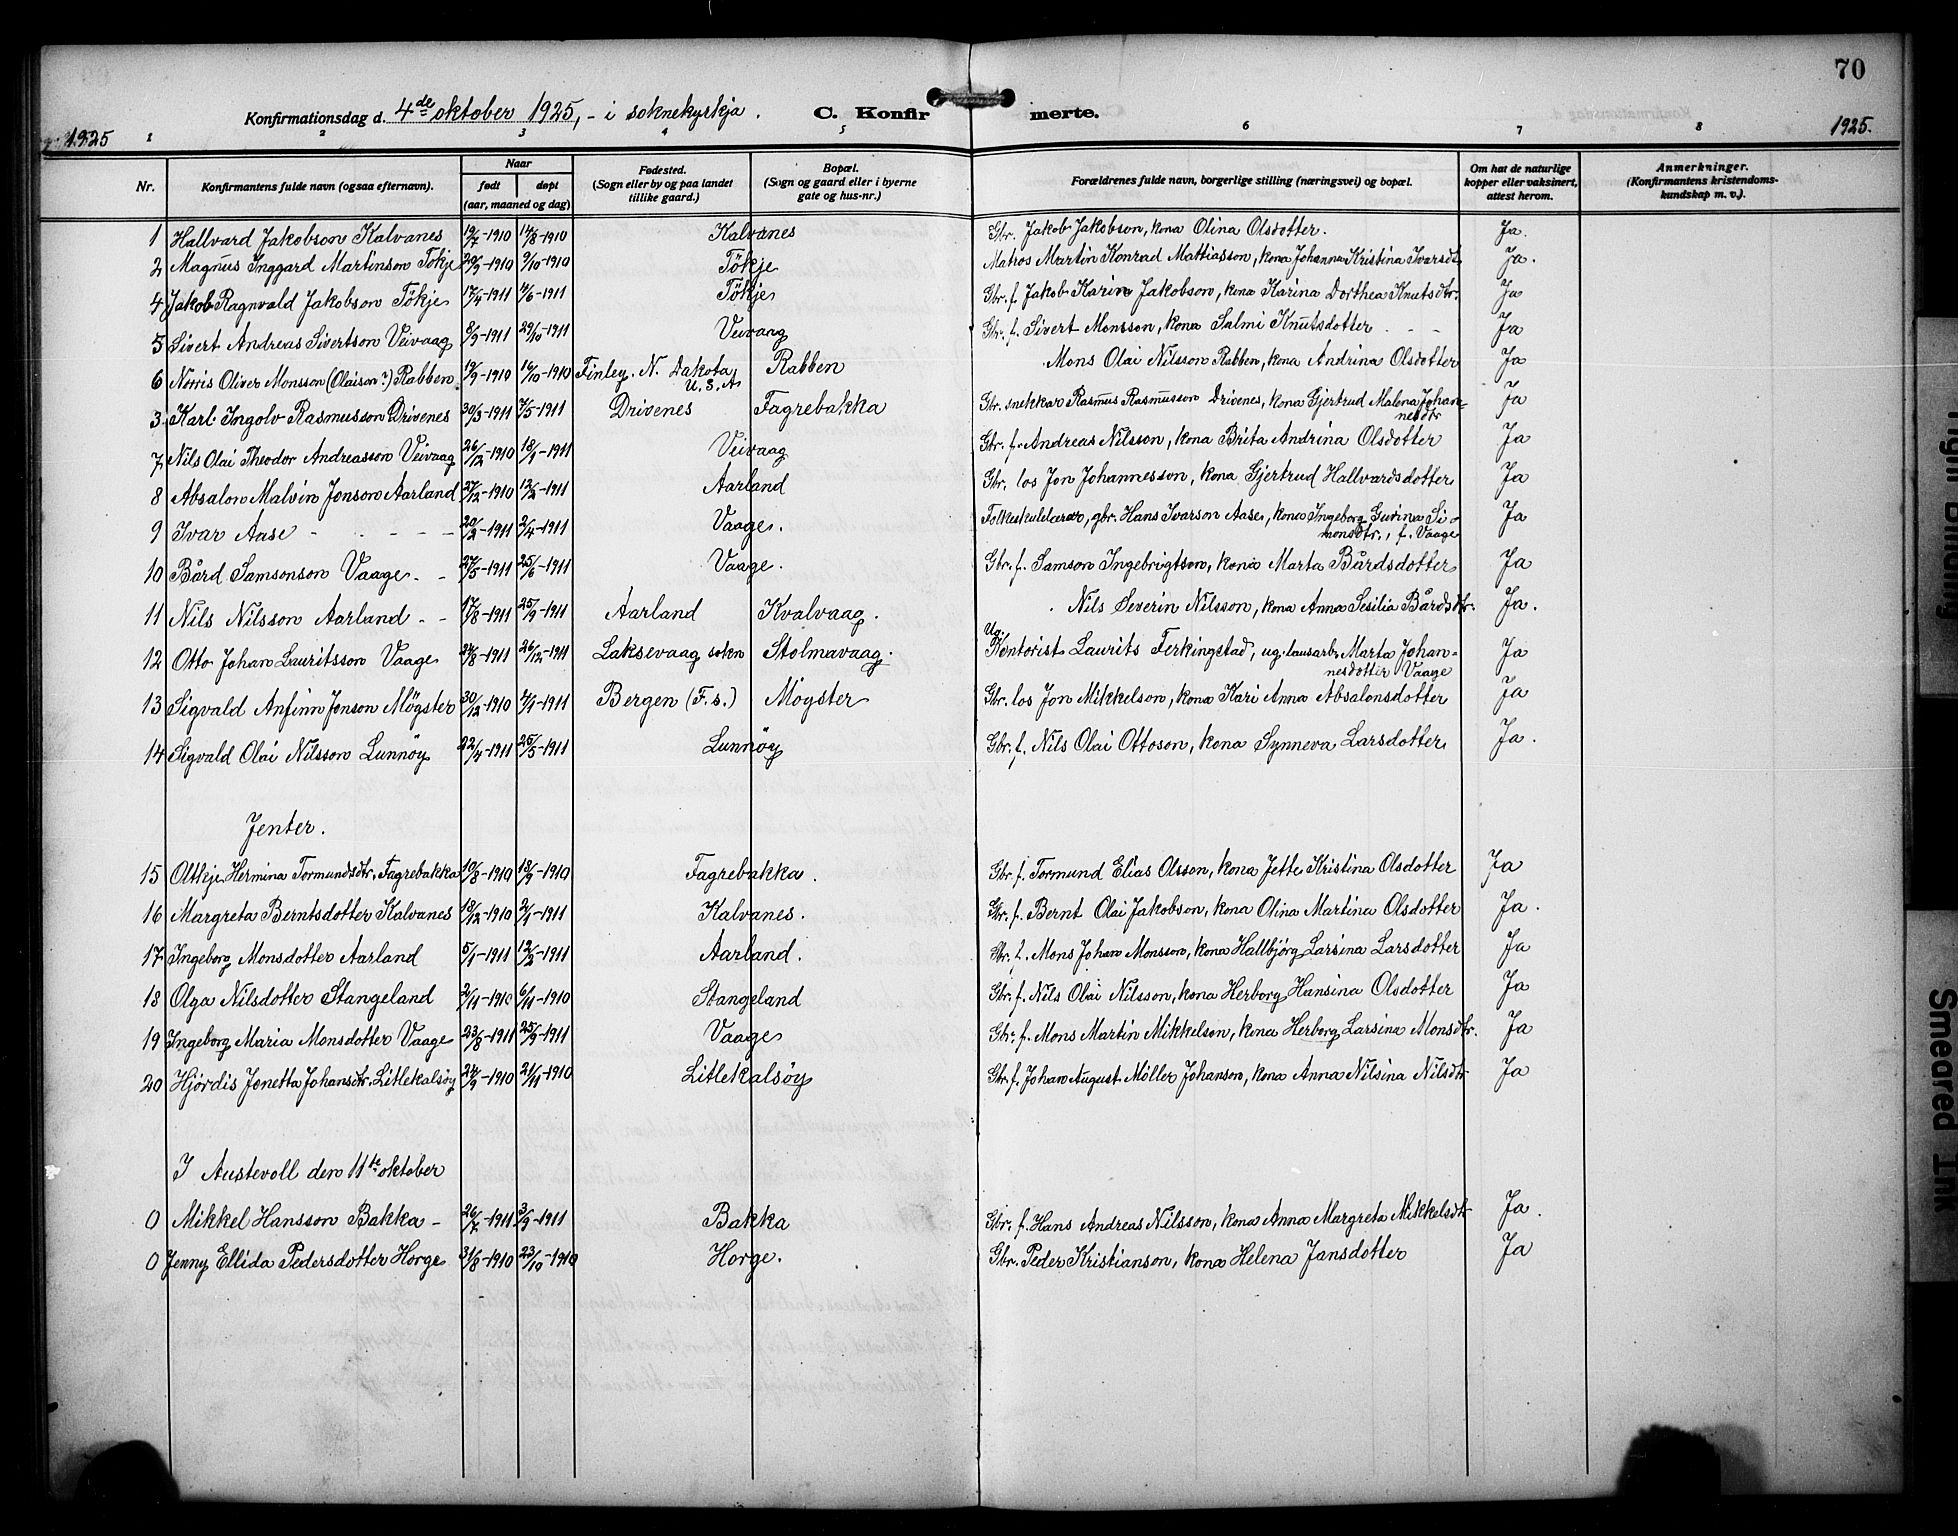 70
Konfirmationsdag d. 4de oktober 1925, - i soknekyrkja. C. Konfirmerte.
1925 1 2 3 4 5 6 7 8 1925.
Nr. Konfirmantens fulde navn (ogsaa efternavn). Naar født døpt (aar, maaned og dag) Fødested. (Sogn eller by og paa landet tillike gaard.) Bopæl. (Sogn og gaard eller i byerne gate og hus-nr.) Forældrenes fulde navn, borgerlige stilling (næringsvei) og bopæl. Om hat de naturlige kopper eller vaksinert, attest herom. Anmerkninger. (Konfirmantens kristendomskundskap m. v.).
1 Hallvard Jakobson Kalvanes 19/7-1910 14/8-1910 Kalvanes Gbr. Jakob Jakobson, kona Olina Olsdotter. Ja.
2 Magnus Inggard Martinson Tökje 20/9-1910 9/10-1910 Tökje Matros Martin Konrad Mattiasson, kona Johanna Kristina Ivarsdt. Ja.
4 Jakob Ragnvald Jakobson Tökje 17/4-1911 4/6-1911 Tökje Gbr. f. Jakob Karin Jakobson, kona Karina Dorthea Knutsdtr. Ja
5 Sivert Andreas Sivertson Veivaag 8/9-1911 29/10-1911 Veivaag Gbr. f. Sivert Monsson, kona Salmi Knutsdotter - - Ja
6 Norris Oliver Monsson (Olaison?) Rabben 19/9-1910 16/10-1910 Finley, N. Dakota, U. S. A. Rabben Mons Olai Nilsson Rabben, kona Andrina Olsdotter Ja
3 Karl Ingolv Rasmusson Drivenes 30/3-1911 7/5-1911 Drivenes Fagrebakka Gbr. snekkar Rasmus Rasmusson Drivenes, kona Gjertrud Malena Johannesdtr Ja
7 Nils Olai Theodor Andreasson Veivaag 26/12-1910 18/1-1911 Veivaag Gbr. f. Andreas Nilsson, kona Brita Andrina Olsdotter Ja
8 Absalon Malvin Jonson Aarland 27/12-1910 12/2-1911 Aarland Gbr. los Jon Johannesson, kona Gjertrud Hallvardsdotter Ja
9 Ivar Aase - - - - 20/2-1911 2/4-1911 Vaage. Folkeskulelærar, gbr. Hans Ivarson Aase, kona Ingeborg Gurina Simonsdtr., f. Vaage Ja
10 Bård Samsonson Vaage - - 27/5-1911 25/6-1911 Vaage. Gbr. f. Samson Ingebrigtson, kona Marta Bårdsdotter Ja
11 Nils Nilsson Aarland - - 17/8-1911 25/9-1911 Aarland Kvalvaag. Nils Severin Nilsson, kona Anna Sesilia Bårdsdtr. Ja.
12 Otto Johan Lauritsson Vaage 24/8-1911 26/12-1911 Laksevaag sokn Stolmavaag. Ug. Kontorist Laurits Ferkingstad, ug. lausarb. Marta Johannesdotter Vaage Ja
13 Sigvald Anfinn Jonson Møgster 30/12-1910 4/1-1911 Bergen (F. s.) Møgster Gbr. los Jon Mikkelson, kona Kari Anna Absalonsdotter Ja
14 Sigvald Olai Nilsson Lunnöy 22/4-1911 25/5-1911 Lunnöy Gbr. f. Nils Olai Ottoson, kona Synneva Larsdotter Ja.
Jenter.
15 Oltkje Hermina Tormundsdtr. Fagrebakka 10/8-1910 18/9-1910 Fagrebakka. Gbr. f. Tormund Elias Olsson, kona Jette Kristina Olsdotter Ja
16 Margreta Berntsdotter Kalvanes 18/12-1910 2/1-1911 Kalvanes. Gbr. f. Bernt Olai Jakobson, kona Olina Martina Olsdotter Ja.
17 Ingeborg Monsdotter Aarland 5/1-1911 12/2-1911 Aarland. Gbr. f. Mons Johan Monsson, kona Hallbjörg Larsina Larsdotter Ja
18 Olga Nilsdotter Stangeland 2/11-1910 6/11-1910 Stangeland Gbr. f. Nils Olai Nilsson, kona Herborg Hansina Olsdotter Ja
19 Ingeborg Maria Monsdotter Vaage 23/8-1911 25/9-1911 Vaage Gbr. f. Mons Martin Mikkelson, kona Herborg Larsina Monsdtr. Ja
20 Hjördis Jonetta Johansdtr. Litlekalsöy 24/9-1910 21/11-1910 Litlekalsöy Gbr. f. Johan August Møller Johanson, kona Anna Nilsina Nilsdtr Ja
I Austevoll den 11te oktober
0 Mikkel Hansson Bakka - 26/7-1911 3/9-1911 Bakka Gbr. f. Hans Andreas Nilsson, kona Anna Margreta Mikkelsdtr Ja.
0 Jenny Ellida Pedersdotter Horge 31/8-1910 23/10-1910 Horge. Gbr. Peder Kristianson, kona Helena Jansdotter Ja
Tight Binding
Smeared Ink